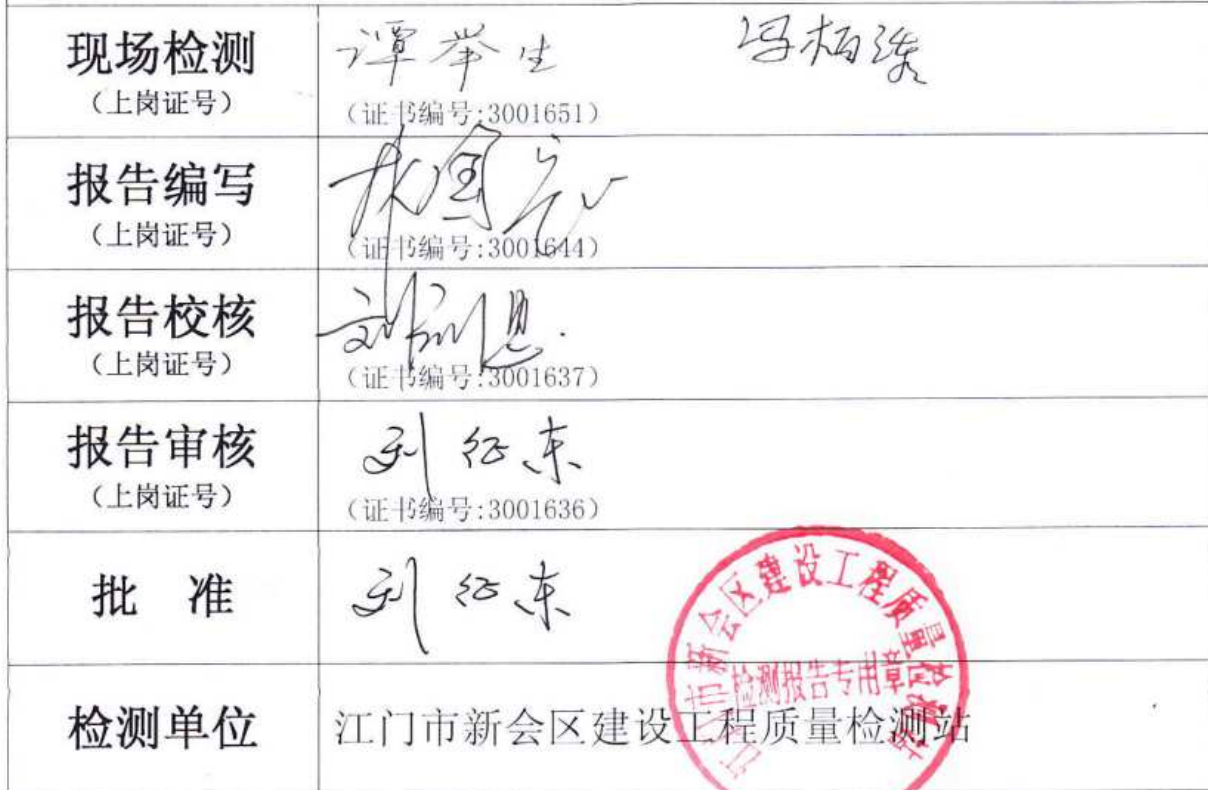 现场检测
(上岗证号)
谭举生
(证书编号:3001651)
报告编写
(上岗证号)
(证书编号:3001644)
报告校核
(上岗证号)
(证书编号:3001637)
报告审核
(上岗证号)
刘征东
(证书编号:3001636)
批 准
刘征东
检测单位
江门市新会区建设工程质量检测站
江门市新会区建设工程质量检测站
检测报告专用章